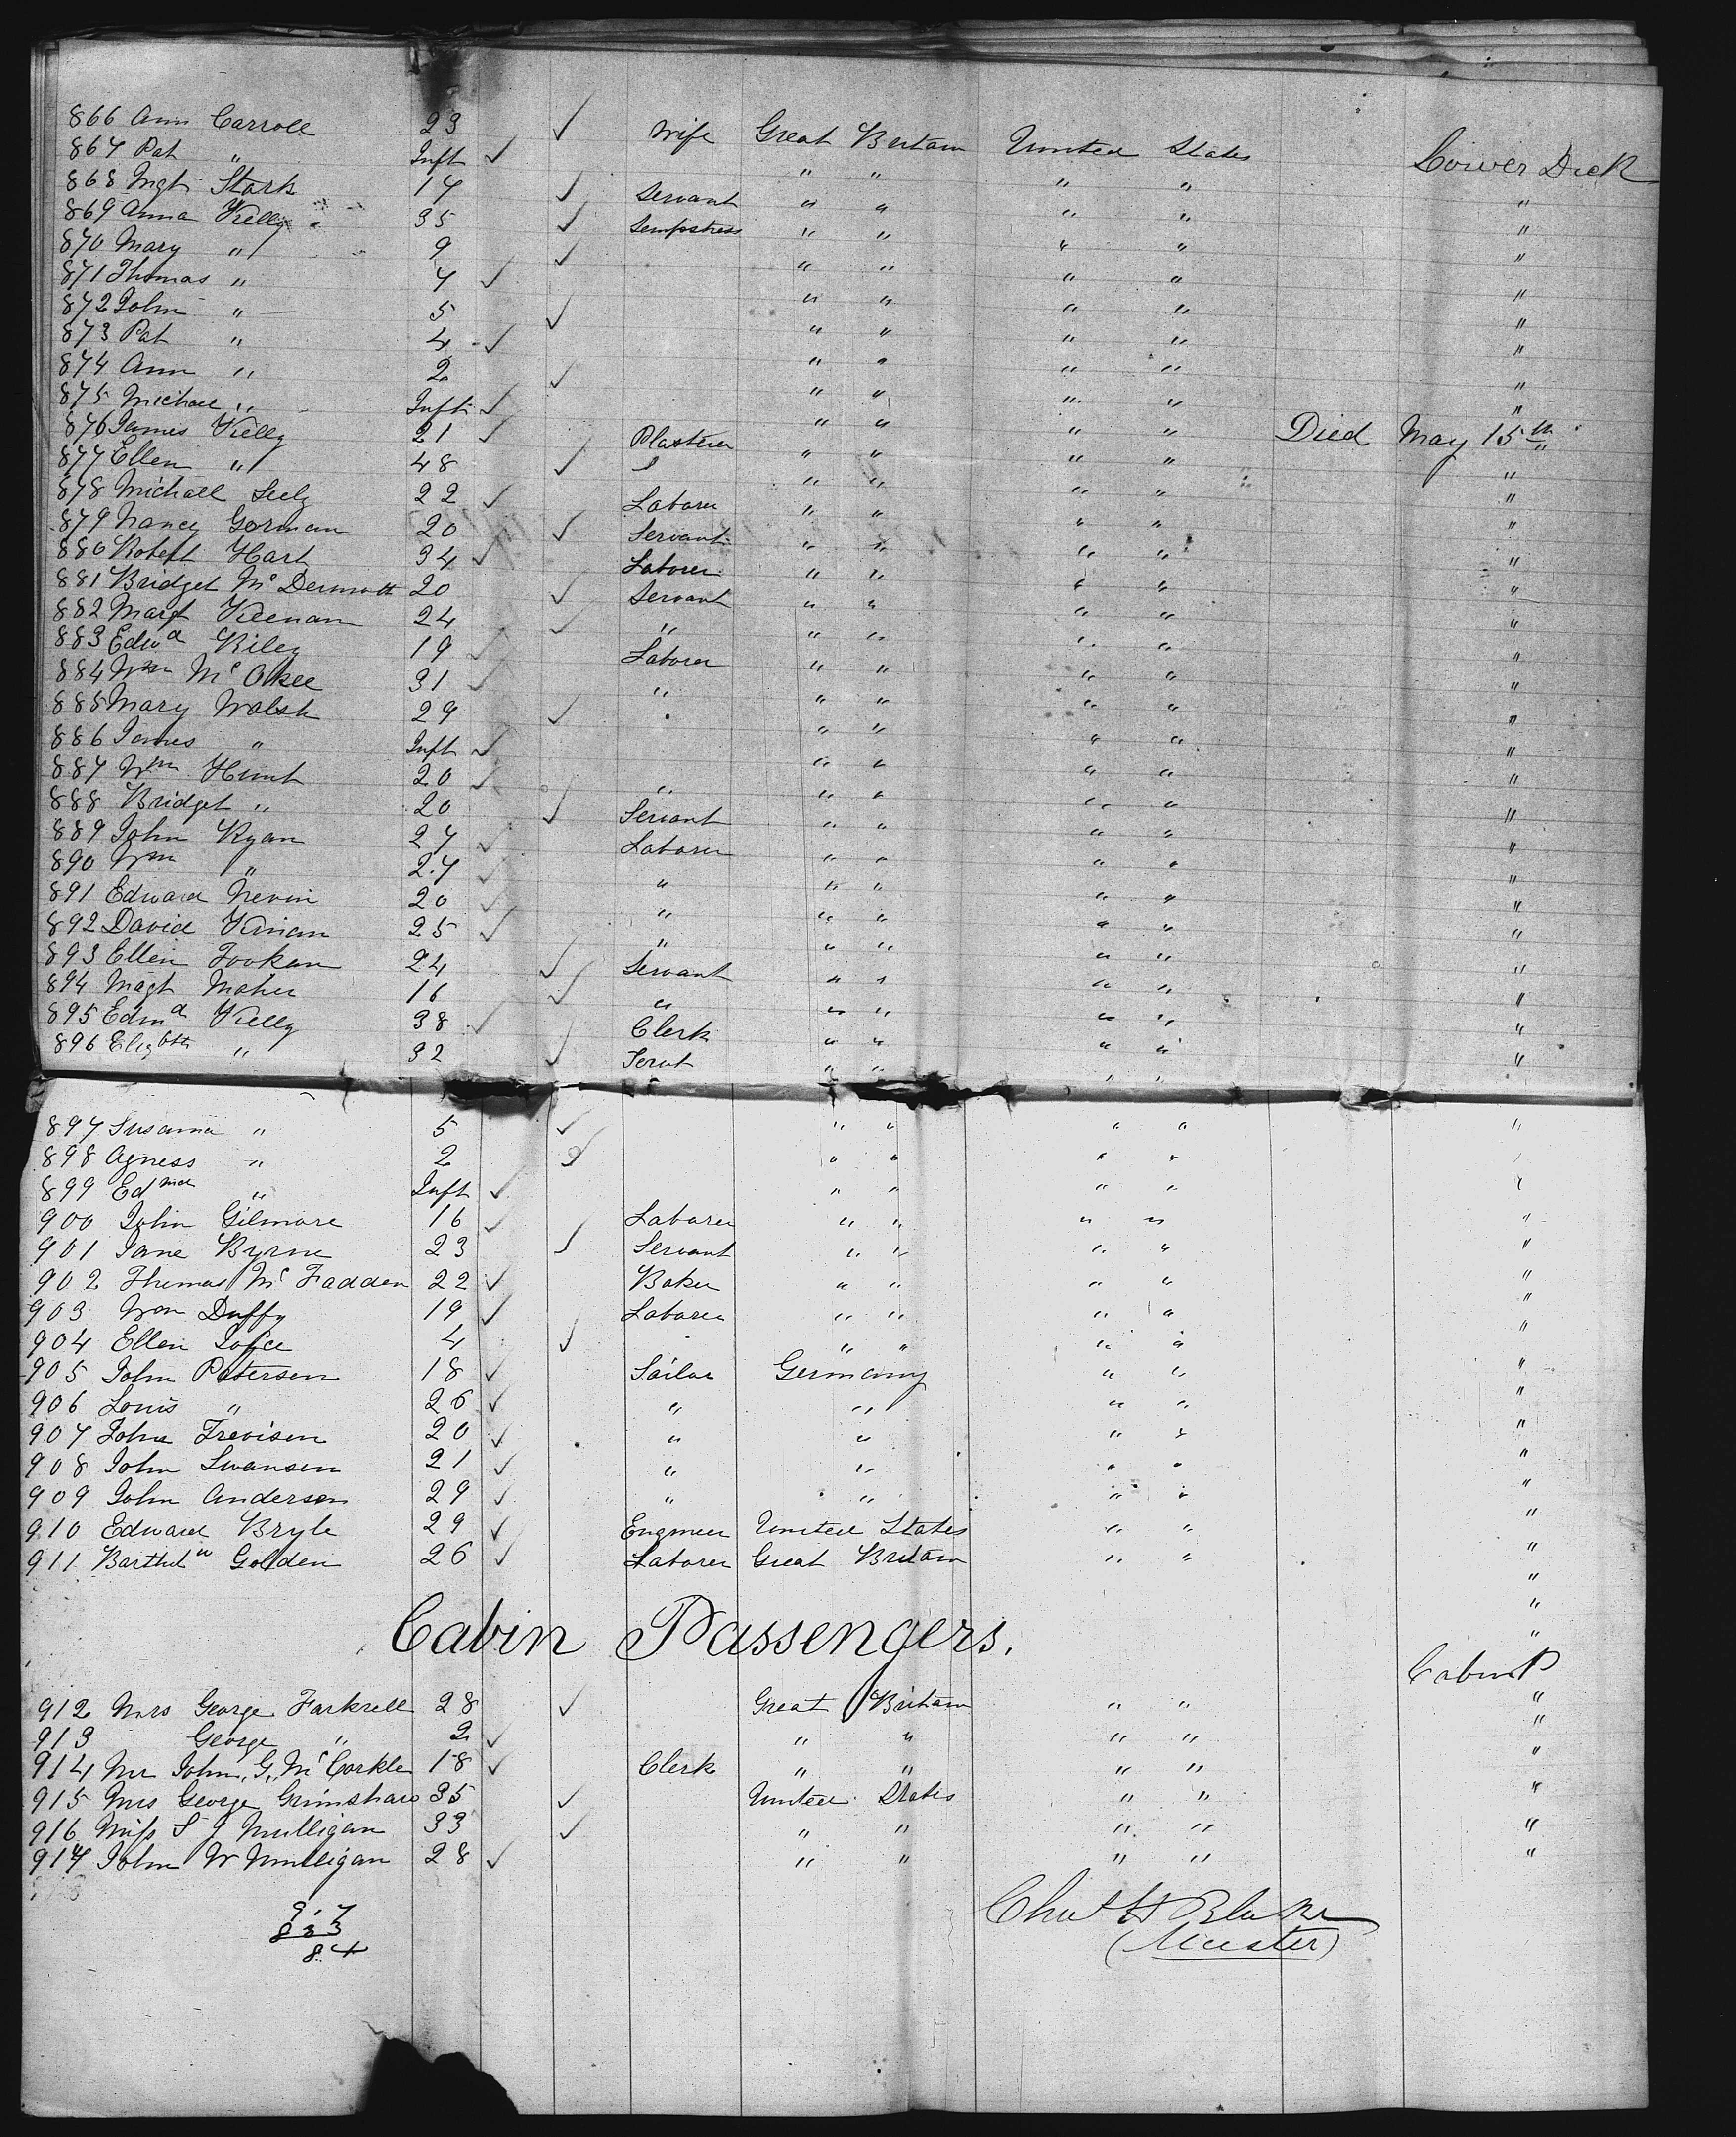 866 Ann Carroll 23 ✓ Wife Great Britain United States Lower Deck
867 Pat " Inft ✓ " " " " "
868 Mgt Stark 17 ✓ Servant " " " " "
869 Anna Kelly 35 ✓ Sempstress " " " " "
870 Mary " 9 ✓ " " " " "
871 Thomas " 7 ✓ " " " " "
872 John " 5 ✓ " " " " "
873 Pat " 4 ✓ " " " " "
874 Ann " 2 ✓ " " " " "
875 Michael " Inft ✓ " " " " "
876 James Kelly 21 ✓ Plasterer " " " " Died May 15th "
877 Ellen " 48 ✓ " " " " "
878 Michael Seely 22 ✓ Laborer " " " " "
879 Nancy Gorman 20 ✓ Servant " " " " "
880 Robert Hart 34 ✓ Laborer " " " " "
881 Bridget McDermott 20 ✓ Servant " " " " "
882 Margt Keenan 24 ✓ " " " " " "
883 Edwd Riley 19 ✓ Laborer " " " " "
884 Wm Mc 31 ✓ " " " " " "
885 Mary Walsh 29 ✓ " " " " "
886 James " Inft ✓ " " " " "
887 Wm Hunt 20 ✓ " " " " " "
888 Bridget " 20 ✓ Servant " " " " "
889 John Ryan 27 ✓ Laborer " " " " "
890 Wm " 27 ✓ " " " " " "
891 Edward Nevin 20 ✓ " " " " " "
892 David Kinian 25 ✓ " " " " " "
893 Ellen Tookan 24 ✓ Servant " " " " "
894 Magt Maher 16 ✓ " " " " " "
895 Edmd Kelly 38 ✓ Clerk " " " " "
896 Elizbth " 32 ✓ Servt " " " " "
897 Susanna " 5 ✓ " " " " "
898 Agness " 2 ✓ " " " " "
899 Edmd " Inft ✓ " " " " "
900 John Gilmore 16 ✓ Laborer " " " " "
901 Jane Byrne 23 ✓ Servant " " " " "
902 Thomas McFadden 22 ✓ Baker " " " " "
903 Wm Duffy 19 ✓ Laborer " " " " "
904 Ellen Joyce 4 ✓ " " " " "
905 John Petersen 18 ✓ Sailor Germany " " "
906 Louis " 26 ✓ " " " " "
907 John Trevisen 20 ✓ " " " " "
908 John Swansen 21 ✓ " " " " "
909 John Andersen 29 ✓ " " " " "
910 Edward Bryle 29 ✓ Engineer United States " " "
911 Barthw Golden 26 ✓ Laborer Great Britain " " "
Cabin Passengers.
Cabin P
912 Mrs George Farkrell 28 ✓ Great Britain " " "
913 George " 2 ✓ " " " " "
914 Mr John, G, McCorkle 18 ✓ Clerk " " " " "
915 Mrs George Grimshaw 35 ✓ United States " " "
916 Miss S J Mulligan 33 ✓ " " " " "
917 John W Mulligan 28 ✓ " " " " "
917
833
84
(Master)